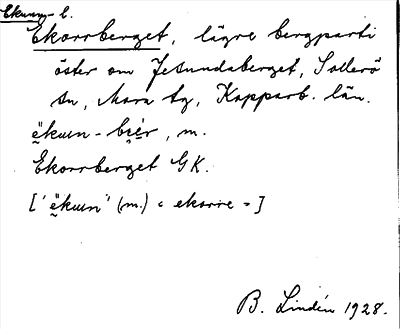 Ekorrberget, lägre bergparti
öster om Jesundaberget, Sollerö
sn, Mora tg, Kopparb. län.
ĕkuɯn-biér, m.
Ekorrberget GK.
['ĕkuɯn' (m.) = ekorre-]
B. Lindén 1928.